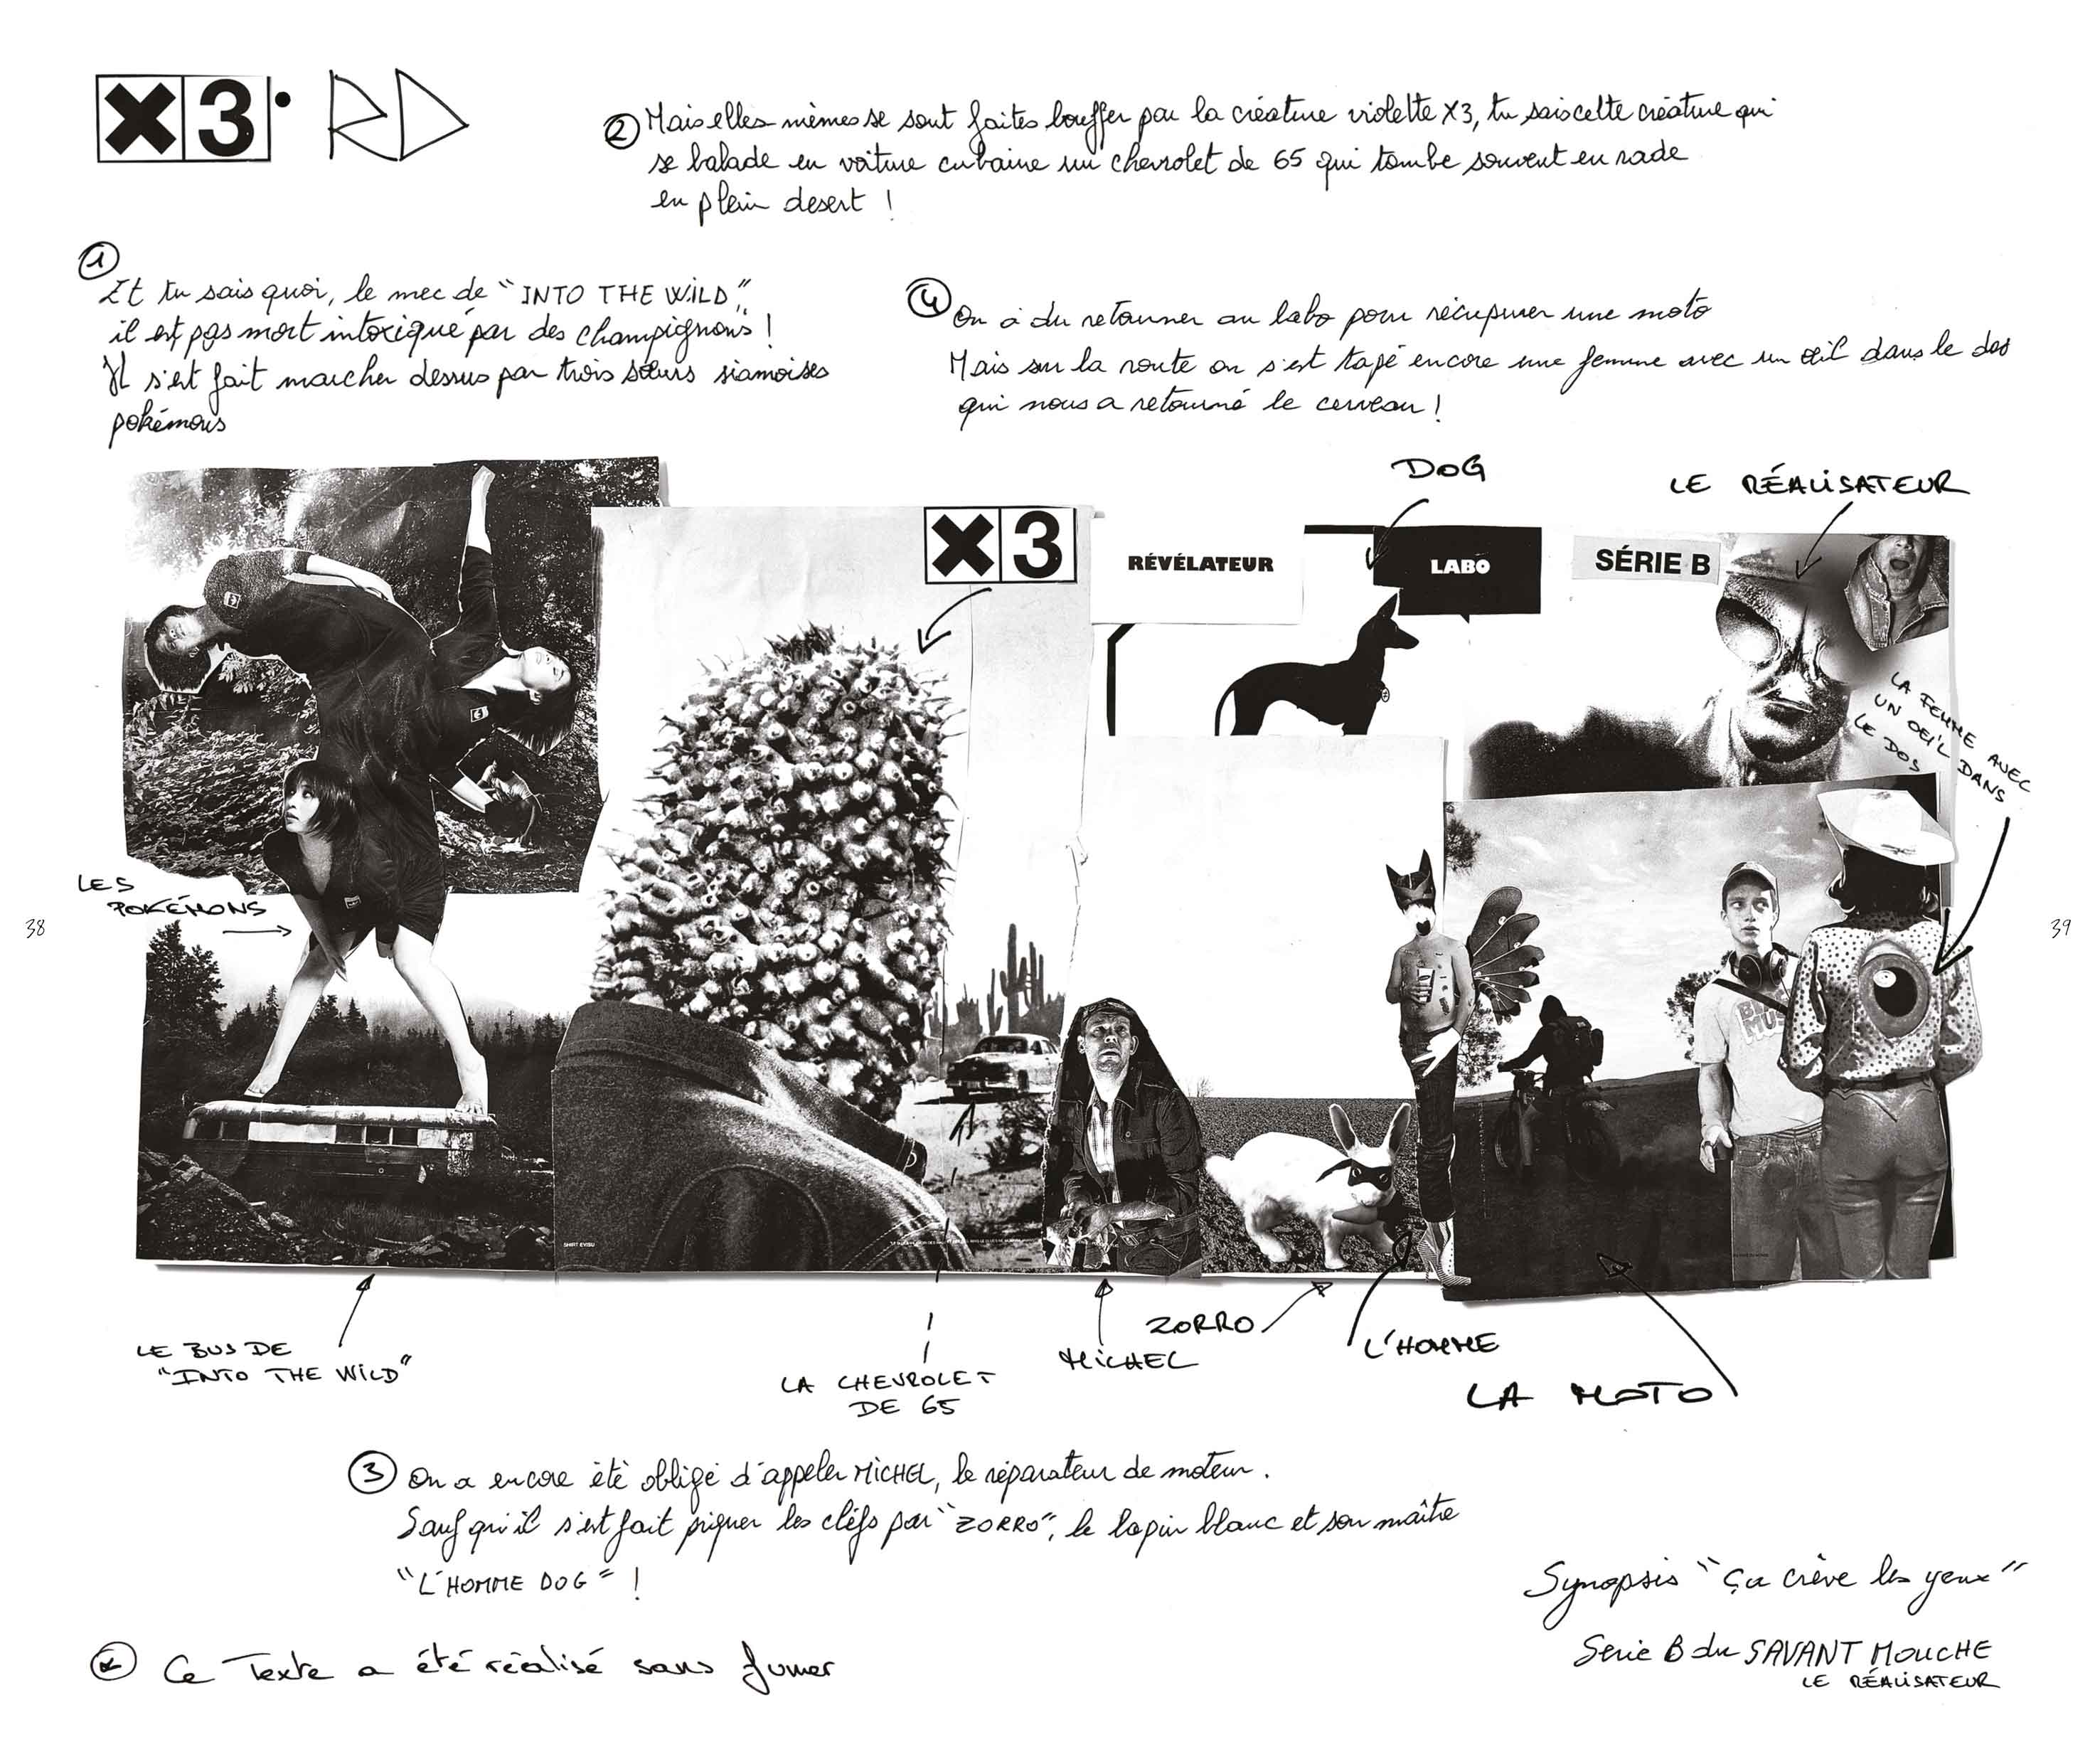 X3. RD
② Mais elles mêmes se sont faites bouffer par la créature violette X3, tu sais cette créature qui
se balade en voiture cubaine un chevrolet de 65 qui tombe souvent en rade
en plein desert !
①
Et tu sais quoi, le mec de "INTO THE WiLD",
il est pas mort intoxiqué par des champignons !
Il s'est fait marcher dessus par trois sœurs siamoises
pokémons
④ On a du retourner au labo pour récupurer une moto
Mais sur la route on s'est tapé encore une femme avec un œil dans le dos
qui nous a retourné le cerveau !
DOG
LE RÉALiSATEUR
X3
RÉVÉLATEUR
LABO
SÉRIE B
LA FEMME AVEC
UN OEiL DANS
LE DOS
LES
POKÉMONS
38
39
SHIRT EVISU
LE BUS DE
"INTO THE WiLD"
LA CHEVROLET
DE 65
MiCHEL
ZORRO
L'HOMME
LA MOTO
③ On a encore été obligé d'appeler MiCHEL, le réparateur de moteur.
Sauf qu'il s'est fait piquer les cléfs par "ZORRO", le lapin blanc et son maître
"L'HOMME DOG" !
Synopsis "Ça crève les yeux"
Serie B du SAVANT MOUCHE
LE RÉALiSATEUR
* Ce Texte a été réalisé sans fumer